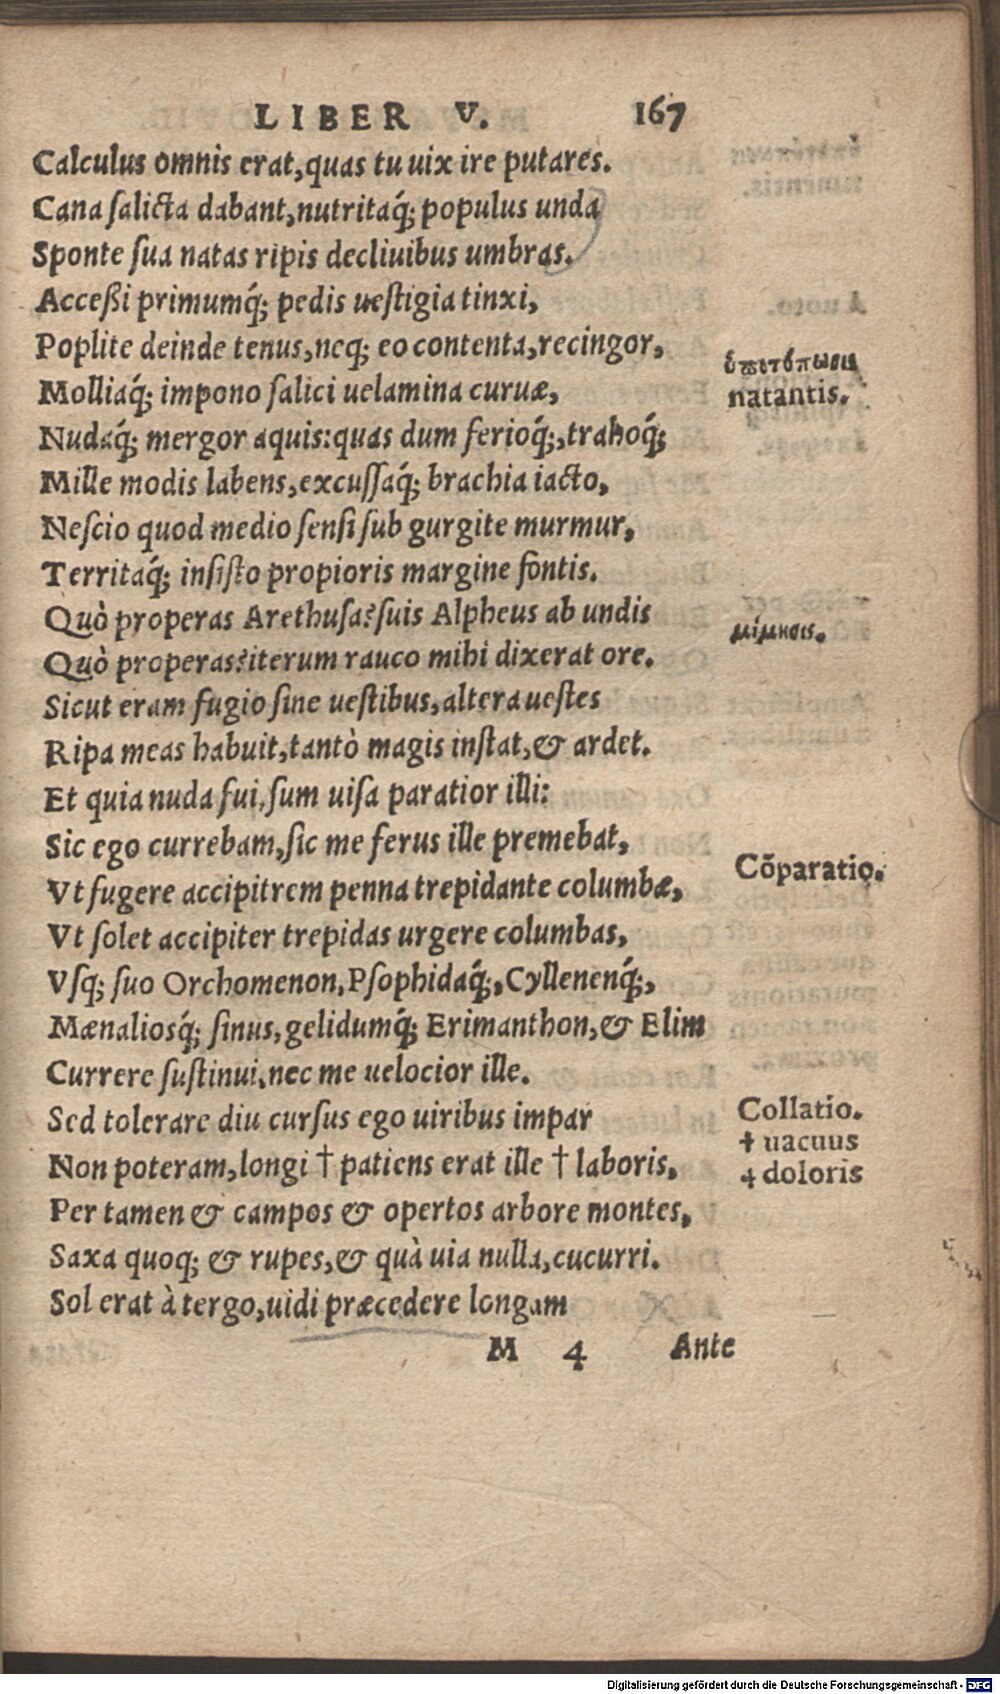 LIBER V. 167
Calculus omnis erat, quas tu uix ire putares.
Cana ſalicta dabant, nutritaq́; populus unda
Sponte ſua natas ripis decliuibus umbras.
Acceßi primumq́; pedis ueſtigia tinxi,
Poplite deinde tenus, neq; eo contenta, recingor,
Molliaq́; impono ſalici uelamina curuæ,
natantis.
Nudaq́; mergor aquis: quas dum ferioq́;, trahoq́;
Mille modis labens, excuſſaq́; brachia iacto,
Neſcio quod medio ſenſi ſub gurgite murmur,
Territaq́; inſiſto propioris margine fontis.
Quò properas Arethuſa? ſuis Alpheus ab undis
μίμησις.
Quò properas? iterum rauco mihi dixerat ore.
Sicut eram fugio ſine ueſtibus, altera ueſtes
Ripa meas habuit, tantò magis inſtat, & ardet.
Et quia nuda fui, ſum uiſa paratior illi:
Sic ego currebam, ſic me ferus ille premebat,
Cõparatio.
Vt fugere accipitrem penna trepidante columbæ,
Vt ſolet accipiter trepidas urgere columbas,
Vſq; ſuo Orchomenon, Pſophidaq́;, Cyllenenq́;,
Mænaliosq́; ſinus, gelidumq́; Erimanthon, & Elim
Currere ſuſtinui, nec me uelocior ille.
Sed tolerare diu curſus ego uiribus impar
Collatio.
† uacuus
Non poteram, longi † patiens erat ille † laboris,
† doloris
Per tamen & campos & opertos arbore montes,
Saxa quoq; & rupes, & quà uia nulla, cucurri.
Sol erat à tergo, uidi præcedere longam
M 4 Ante
Digitalisierung gefördert durch die Deutsche Forschungsgemeinschaft - DFG